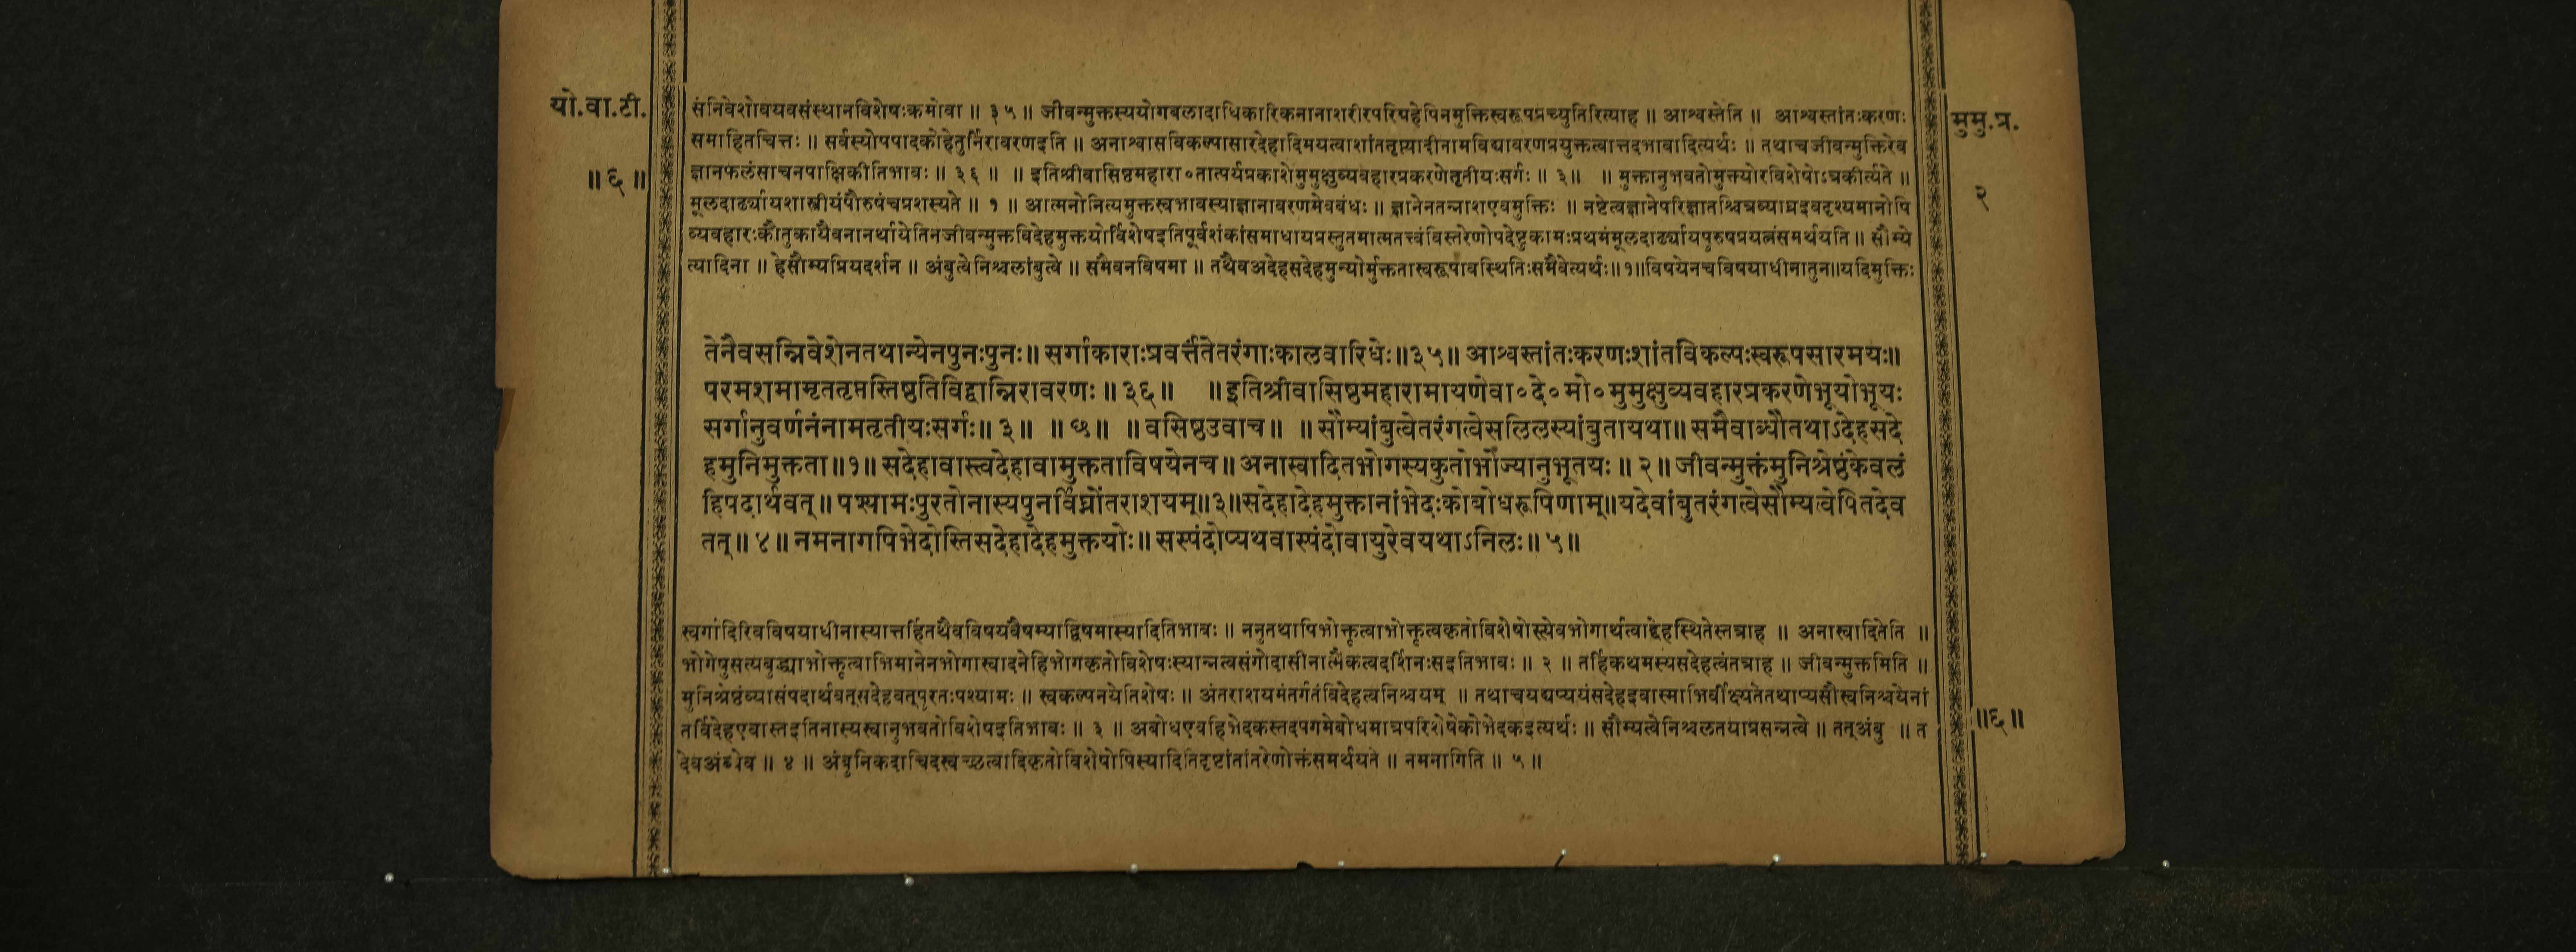 यो.वा.टी.
॥६॥
मुमु.प्र.
२
संनिवेशोवयवसंस्थानविशेषःक्रमोवा ॥ ३५ ॥ जीवन्मुक्तस्ययोगबलादाधिकारिकनानाशरीरपरिग्रहेपिनमुक्तिस्वरूपप्रच्युतिरित्याह ॥ आश्वस्तेति ॥ आश्वस्तांतःकरणः
समाहितचित्तः ॥ सर्वस्योपपादकोहेतुर्निरावरणइति ॥ अनाश्वासविकल्पासारदेहादिमयत्वाशांततृप्त्यादीनामविद्यावरणप्रयुक्तत्वात्तदभावादित्यर्थः ॥ तथाचजीवन्मुक्तिरेव
ज्ञानफलंसाचनपाक्षिकीतिभावः ॥ ३६ ॥ ॥ इतिश्रीवासिष्ठमहारा०तात्पर्यप्रकाशेमुमुक्षुव्यवहारप्रकरणेतृतीयःसर्गः ॥ ३॥ ॥ मुक्तानुभवतोमुक्त्योरविशेषोऽत्रकीर्त्यते ॥
मूलदार्ढ्यायशास्त्रीयंपौरुषंचप्रशस्यते ॥ १ ॥ आत्मनोनित्यमुक्तस्वभावस्याज्ञानावरणमेवबंधः ॥ ज्ञानेनतन्नाशएवमुक्तिः ॥ नष्टेत्वज्ञानेपरिज्ञातश्चित्रव्याघ्रइवदृश्यमानोपि
व्यवहारःकौतुकायैवनानर्थायेतिनजीवन्मुक्तविदेहमुक्तयोर्विशेषइतिपूर्वशंकांसमाधायप्रस्तुतमात्मतत्त्वंविस्तरेणोपदेष्टुकामःप्रथमंमूलदार्ढ्यायपुरुषप्रयत्नंसमर्थयति ॥ सौम्ये
त्यादिना ॥ हेसौम्यप्रियदर्शन ॥ अंबुत्वेनिश्चलांबुत्वे ॥ समैवनविषमा ॥ तथैवअदेहसदेहमुन्योर्मुक्ततास्वरूपावस्थितिःसमैवेत्यर्थः॥१॥विषयेनचविषयाधीनातुन॥यदिमुक्तिः
तेनैवसन्निवेशेनतथान्येनपुनःपुनः॥ सर्गाकाराःप्रवर्त्तंतेतरंगाःकालवारिधेः॥३५॥ आश्वस्तांतःकरणःशांतविकल्पःस्वरूपसारमयः॥
परमशमामृततृप्तस्तिष्ठतिविद्वान्निरावरणः ॥ ३६॥ ॥ इतिश्रीवासिष्ठमहारामायणेवा०दे०मो०मुमुक्षुव्यवहारप्रकरणेभूयोभूयः
सर्गानुवर्णनंनामतृतीयःसर्गः॥ ३॥ ॥ ७॥ ॥ वसिष्ठउवाच ॥ ॥ सौम्यांबुत्वेतरंगत्वेसलिलस्यांबुतायथा॥ समैवाब्धौतथाऽदेहसदे
हमुनिमुक्तता॥१॥ सदेहावास्त्वदेहावामुक्तताविषयेनच॥ अनास्वादितभोगस्यकुतोभोज्यानुभूतयः ॥ २॥ जीवन्मुक्तंमुनिश्रेष्ठंकेवलं
हिपदार्थवत् ॥ पश्यामःपुरतोनास्यपुनर्विघ्नोंतराशयम्॥३॥सदेहादेहमुक्तानांभेदःकोबोधरूपिणाम्॥यदेवांबुतरंगत्वेसौम्यत्वेपितदेव
तत् ॥ ४ ॥ नमनागपिभेदोस्तिसदेहादेहमुक्तयोः॥ सस्पंदोप्यथवास्पंदोवायुरेवयथाऽनिलः॥ ५॥
स्वर्गादिरिवविषयाधीनास्यात्तर्हितथैवविषयवैषम्याद्विषमास्यादितिभावः ॥ ननुतथापिभोक्तृत्वाभोक्तृत्वकृतोविशेषोस्त्येवभोगार्थत्वाद्देहस्थितेस्तत्राह ॥ अनास्वादितेति ॥
भोगेषुसत्यबुद्ध्याभोक्तृत्वाभिमानेनभोगास्वादनेहिभोगकृतोविशेषःस्यान्नत्वसंगोदासीनात्मैकत्वदर्शिनःसइतिभावः ॥ २ ॥ तर्हिकथमस्यसदेहत्वंतत्राह ॥ जीवन्मुक्तमिति ॥
मुनिश्रेष्ठंव्यासंपदार्थवत्सदेहवत्पुरतःपश्यामः ॥ स्वकल्पनयेतिशेषः ॥ अंतराशयमंतर्गतंविदेहत्वनिश्चयम् ॥ तथाचयद्यप्ययंसदेहइवास्माभिर्वीक्ष्यतेतथाप्यसौस्वनिश्चयेनां
तर्विदेहएवास्तइतिनास्यस्वानुभवतोविशेषइतिभावः ॥ ३ ॥ अबोधएवहिभेदकस्तदपगमेबोधमात्रपरिशेषेकोभेदकइत्यर्थः ॥ सौम्यत्वेनिश्चलतयाप्रसन्नत्वे ॥ तत्अंबु ॥ त
देवअंब्वेव ॥ ४ ॥ अंबुनिकदाचिदस्वच्छत्वादिकृतोविशेषोपिस्यादितिदृष्टांतांतरेणोक्तंसमर्थयते ॥ नमनागिति ॥ ५ ॥
॥६॥